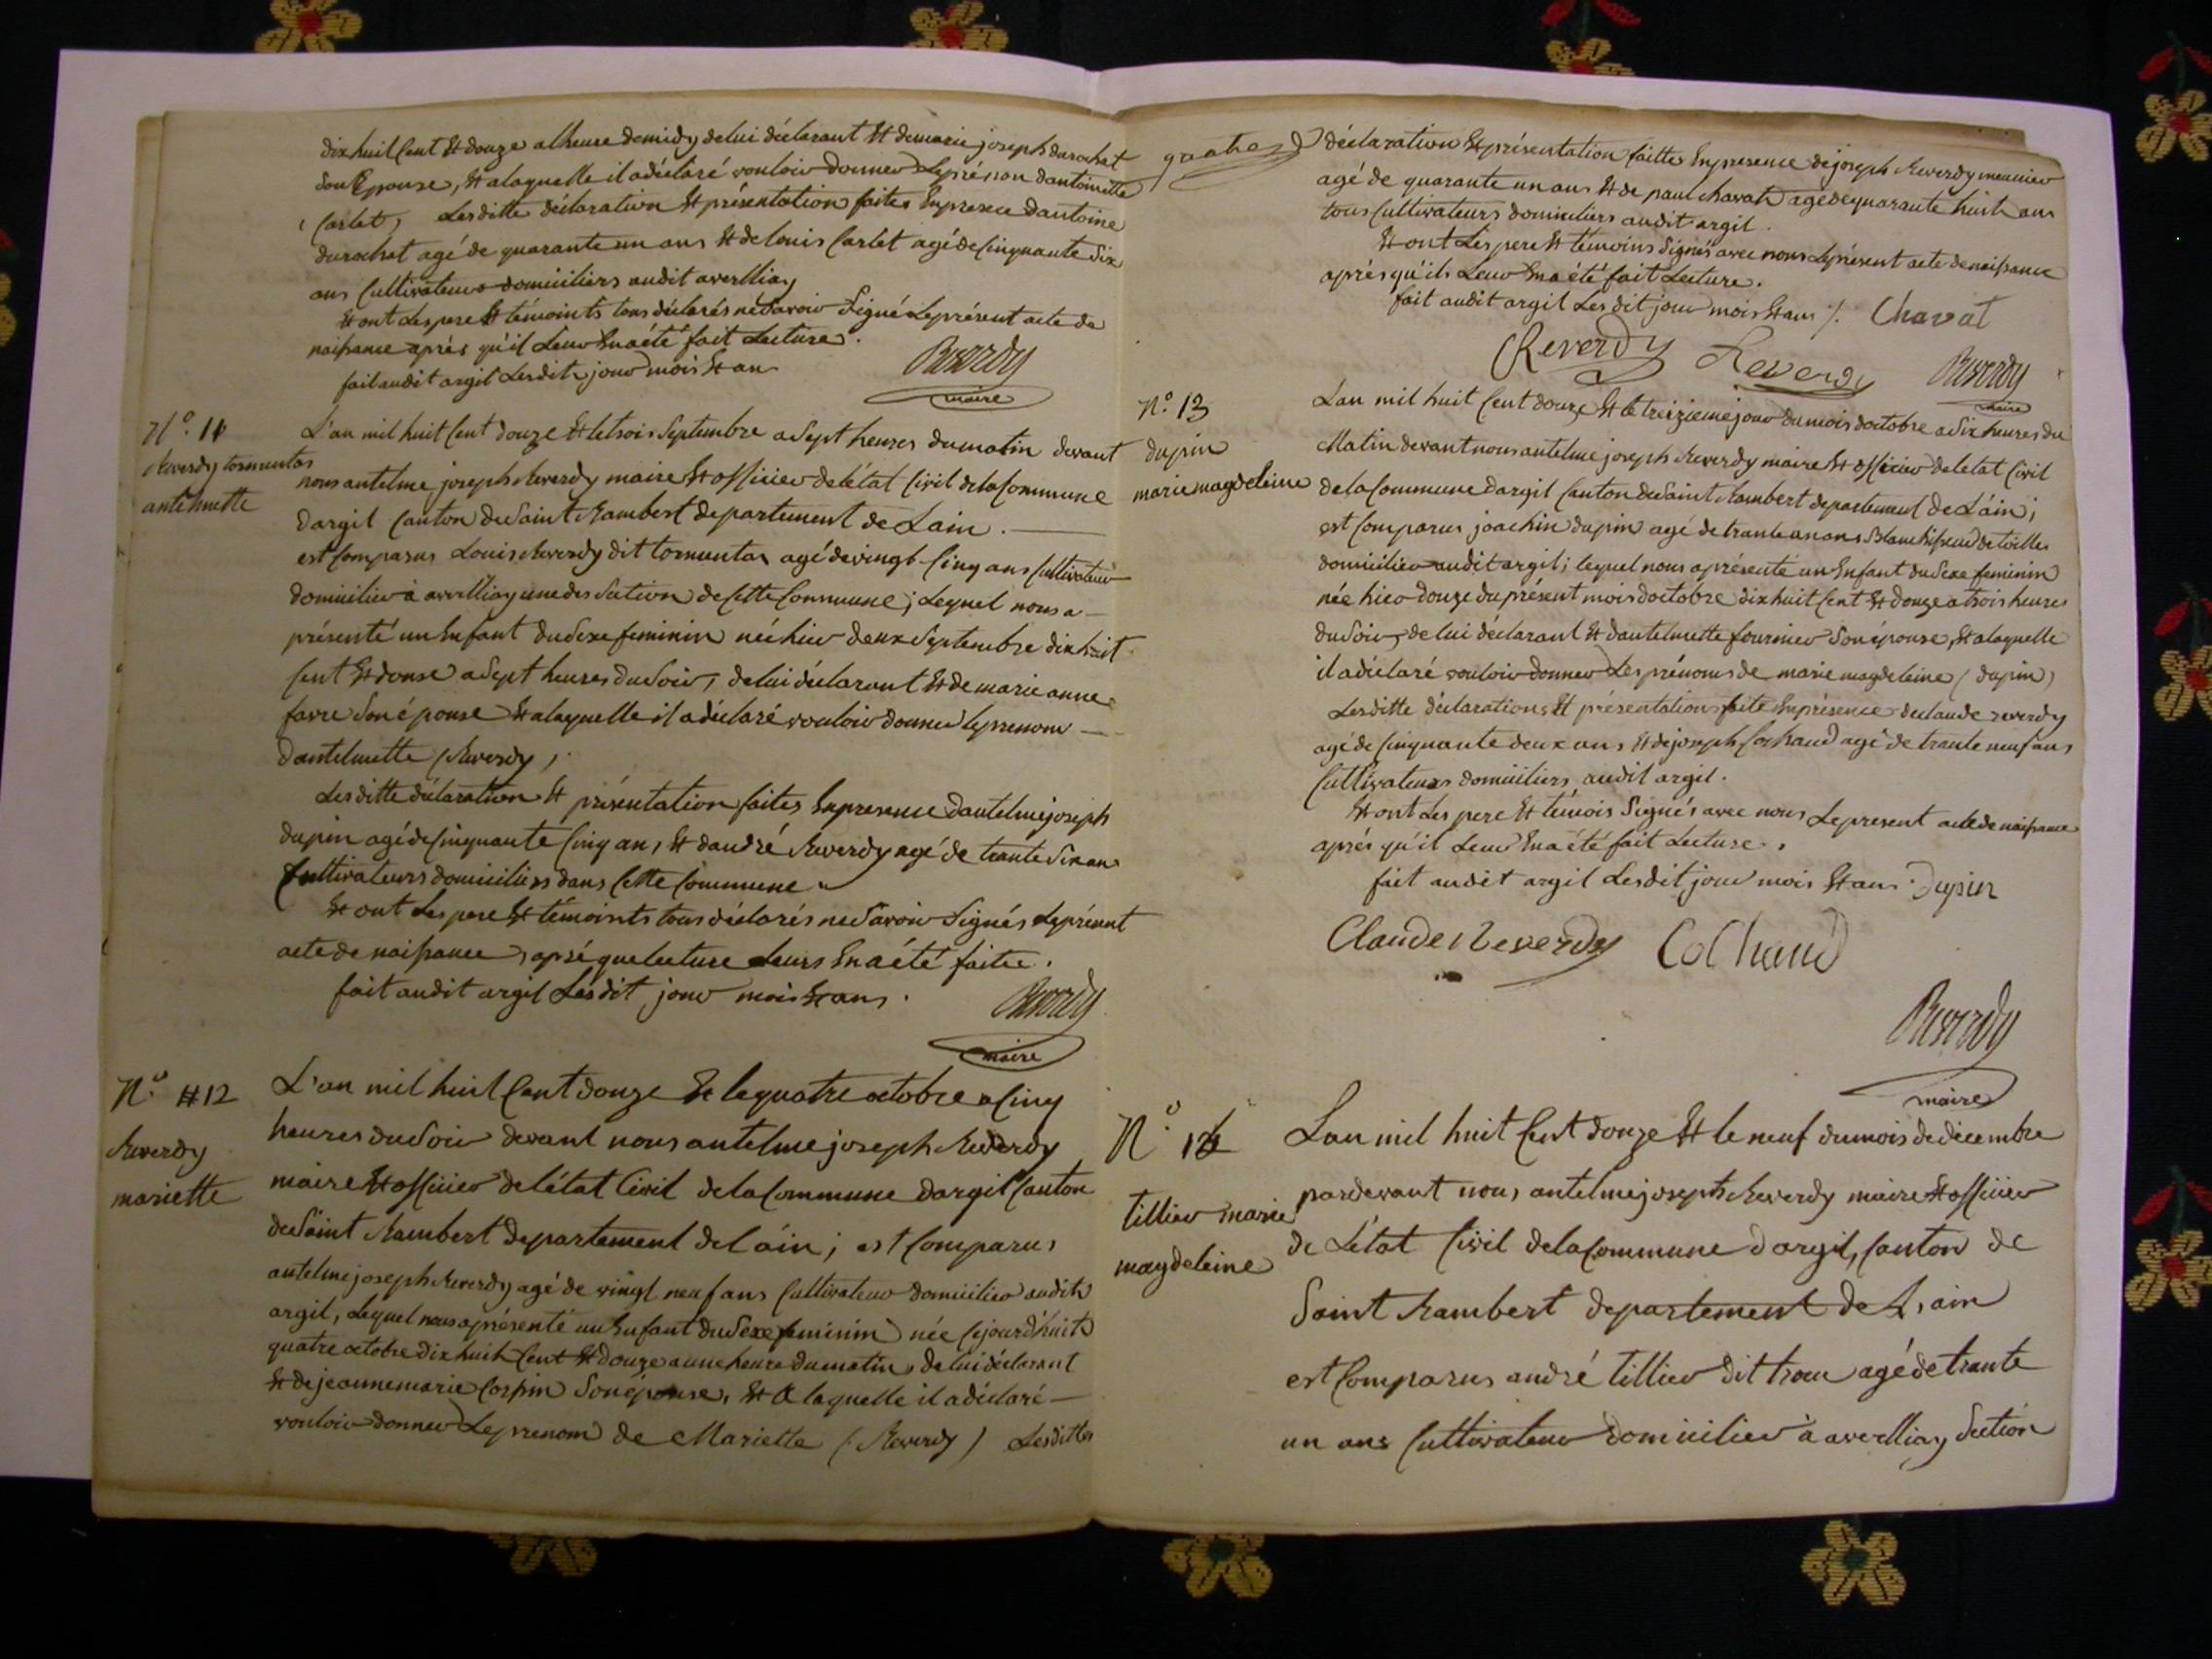 dix huit Cent Et douze alheure demidy delui déclarant Et demarie joseph durochat
Son Epouse, Et alaquelle il adéclaré vouloir donner Leprénon dantoinette
( Carlet ) Lesditte déclaration Et présentation faites Enpresence dantoine
durochat agé de quarante un ans Et delouis Carlet agé de Cinquante Six
ans Cultivateurs domiciliers audit averlliay
Et ont Les pere Et témoints tous déclarés ne Savoir Signé Leprésent acte de
naissance aprés qu'il Leur Ena été fait Lecture.
fait audit argil Lesdit jour mois Et an
Reverdy
maire
N.o 11
Reverdy tormentas
antelmette
L'an mil huit Cent douze Et le trois Septembre a Sept heures dumatin devant
nous antelme joseph Reverdy maire Et officier de létat Civil dela Commune
dargil Canton de Saint Rambert departement de Lain.
est Comparus Louis Reverdy dit tormentas agé de vingt Cinq ans Cultivateur
domicilier à averlliay une des Section de Cette Commune ; Lequel nous a
présenté un Enfant du Sexe feminin née hier deux Septembre dix huit
Cent Et douse a Sept heures du Soir, delui déclarant Et de marie anne
favre Son épouse Et alaquelle il adéclaré vouloir donner le prenom
dantelmette ( Reverdy )
Lesditte déclaration Et présentation faites Enpresence dantelme joseph
dupin agé de Cinquante Cinq an, Et dandré Reverdy agé de trante Six ans
Cultivateurs domiciliers dans Cette Commune
Et ont Les pere Et témoints tous déclarés ne Savoir Signés Leprésent
acte de naissance, apré que lecture Leurs En a été faitte.
fait audit argil Lesdit jour mois Et ans.
Reverdy
maire
N.o 12
Reverdy
mariette
L'an mil huit Cent douze Et le quatre octobre a Cinq
heures du Soir devant nous antelme joseph Reverdy
maire Et officier de létat Civil de la Commune dargil Canton
de Saint Rambert departement de l'ain ; est Comparus
antelme joseph Reverdy agé de vingt neuf ans Cultivateur domicilier audit
argil, Lequel nous aprésenté un Enfant du Sexe feminin née Cejourdhuit
quatre octobre dix huit Cent Et douze a une heure du matin, de lui déclarant
Et de jeanne marie Corpin Son épouse, Et A laquelle il adéclaré
vouloir donner Le prenom de Mariette ( Reverdy ) Lesdittes
déclaration Et présentation faitte Enpresence de joseph Reverdy meunier
agé de quarante un ans Et de paul chavat agé de quarante huit ans
tous Cultivateurs domiciliers audit argil.
Et ont Les pere Et témoins Signés avec nous Leprésent acte de naissance
aprés qu'ils Leur Ena été fait Lecture.
fait audit argil Lesdit jour mois Et ans /. Chavat
Reverdy Reverdy Reverdy
maire
N.o 13
dupin
marie magdeleine
L'an mil huit Cent douze Et le treizieme jour du mois doctobre a Six heures du
Matin devant nous antelme joseph Reverdy maire Et officier de letat Civil
de la Commune dargil Canton de Saint Rambert departement de L'ain ;
est Comparus joachin dupin agé de trante un ans Blanchisseur de toilles
domicilier audit argil ; lequel nous aprésenté un Enfant du Sexe feminin
née hier douze du présent mois doctobre dix huit Cent Et douze a trois heures
du Soir, de lui déclarant Et dantelmette fournier Son épouse, Et alaquelle
il adéclaré vouloir donner Les prénoms de marie magdeleine ( dupin )
Lesditte déclarations Et présentations faite Enprésence declaude reverdy
agé de Cinquante deux ans Et de joseph Cochaud agé de trante neuf ans
Cultivateurs domiciliers audit argil.
Et ont Les pere Et témois Signés avec nous Lepresent acte de naissance
aprés qu'il Leur Ena été fait Lecture.
fait audit argil Lesdit jour mois Et ans. Dupin
Claude Reverdy Cochaud
Reverdy
maire
N.o 14
tillier marie
magdeleine
Lan mil huit Cent douze Et le neuf du mois de décembre
pardevant nous antelme joseph Reverdy maire Et officier
de L'état Civil de la Commune dargil, Canton de
Saint Rambert departement de L'ain
est Comparus andré tillier dit agé de trante
un ans Cultivateur domicilier à averlliay Section